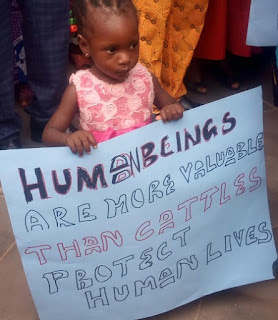 HUMAN BEINGS
ARE MORE VALUABLE
THAN CATTLES
PROTECT
HUMAN LIVES